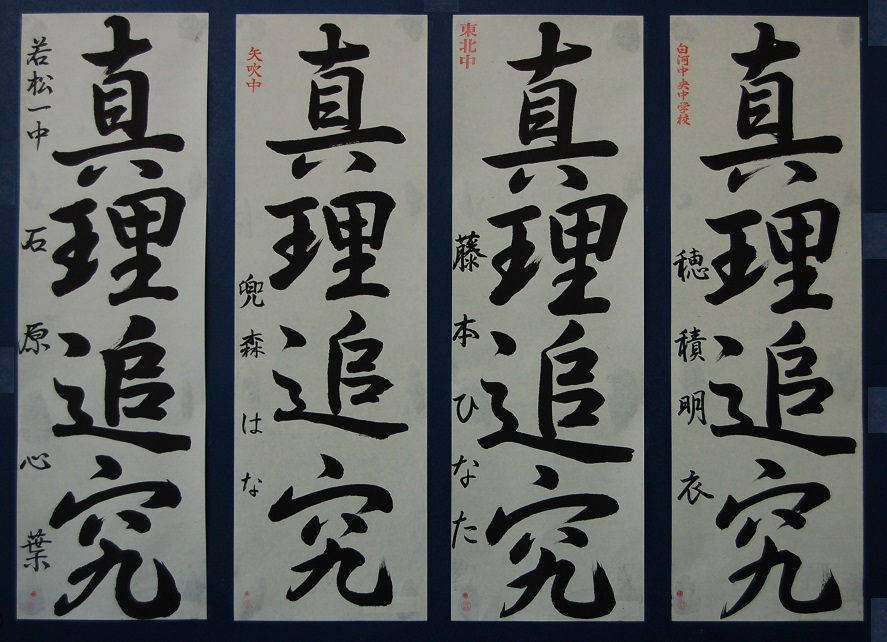 白河中央中学校
真理追究
穂積明衣
東北中
真理追究
藤本ひなた
矢吹中
真理追究
兜森はな
若松一中
真理追究
石原心葉